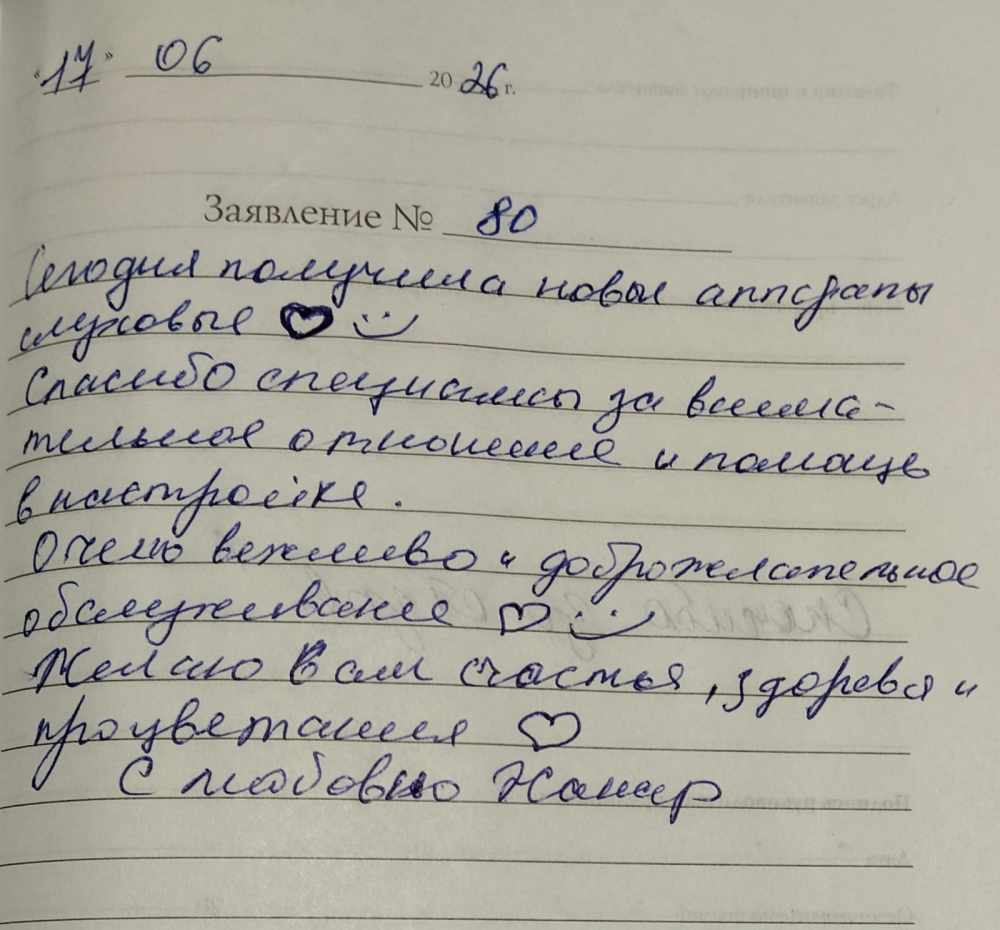 «17» 06 2026 г.
Заявление № 80
Сегодня получила новые аппараты
слуховые
Спасибо специалисты за внима-
тельное отношение и помощь
в настройке.
Очень вежливо и доброжелательное
обслуживание
Желаю Вам счастья, здоровья и
процветания
С любовью